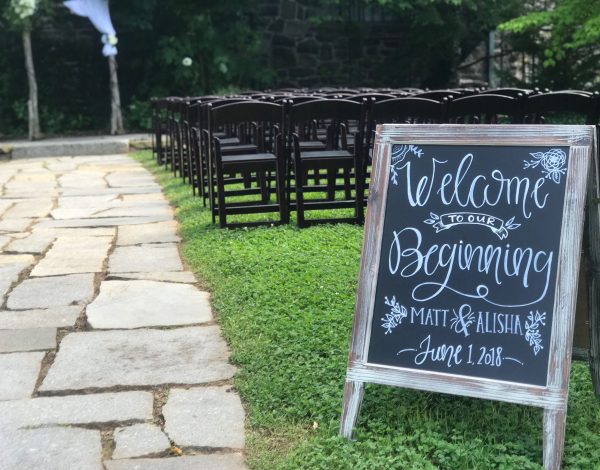 Welcome
TO OUR
Beginning
MATT & ALISHA
June 1, 2018